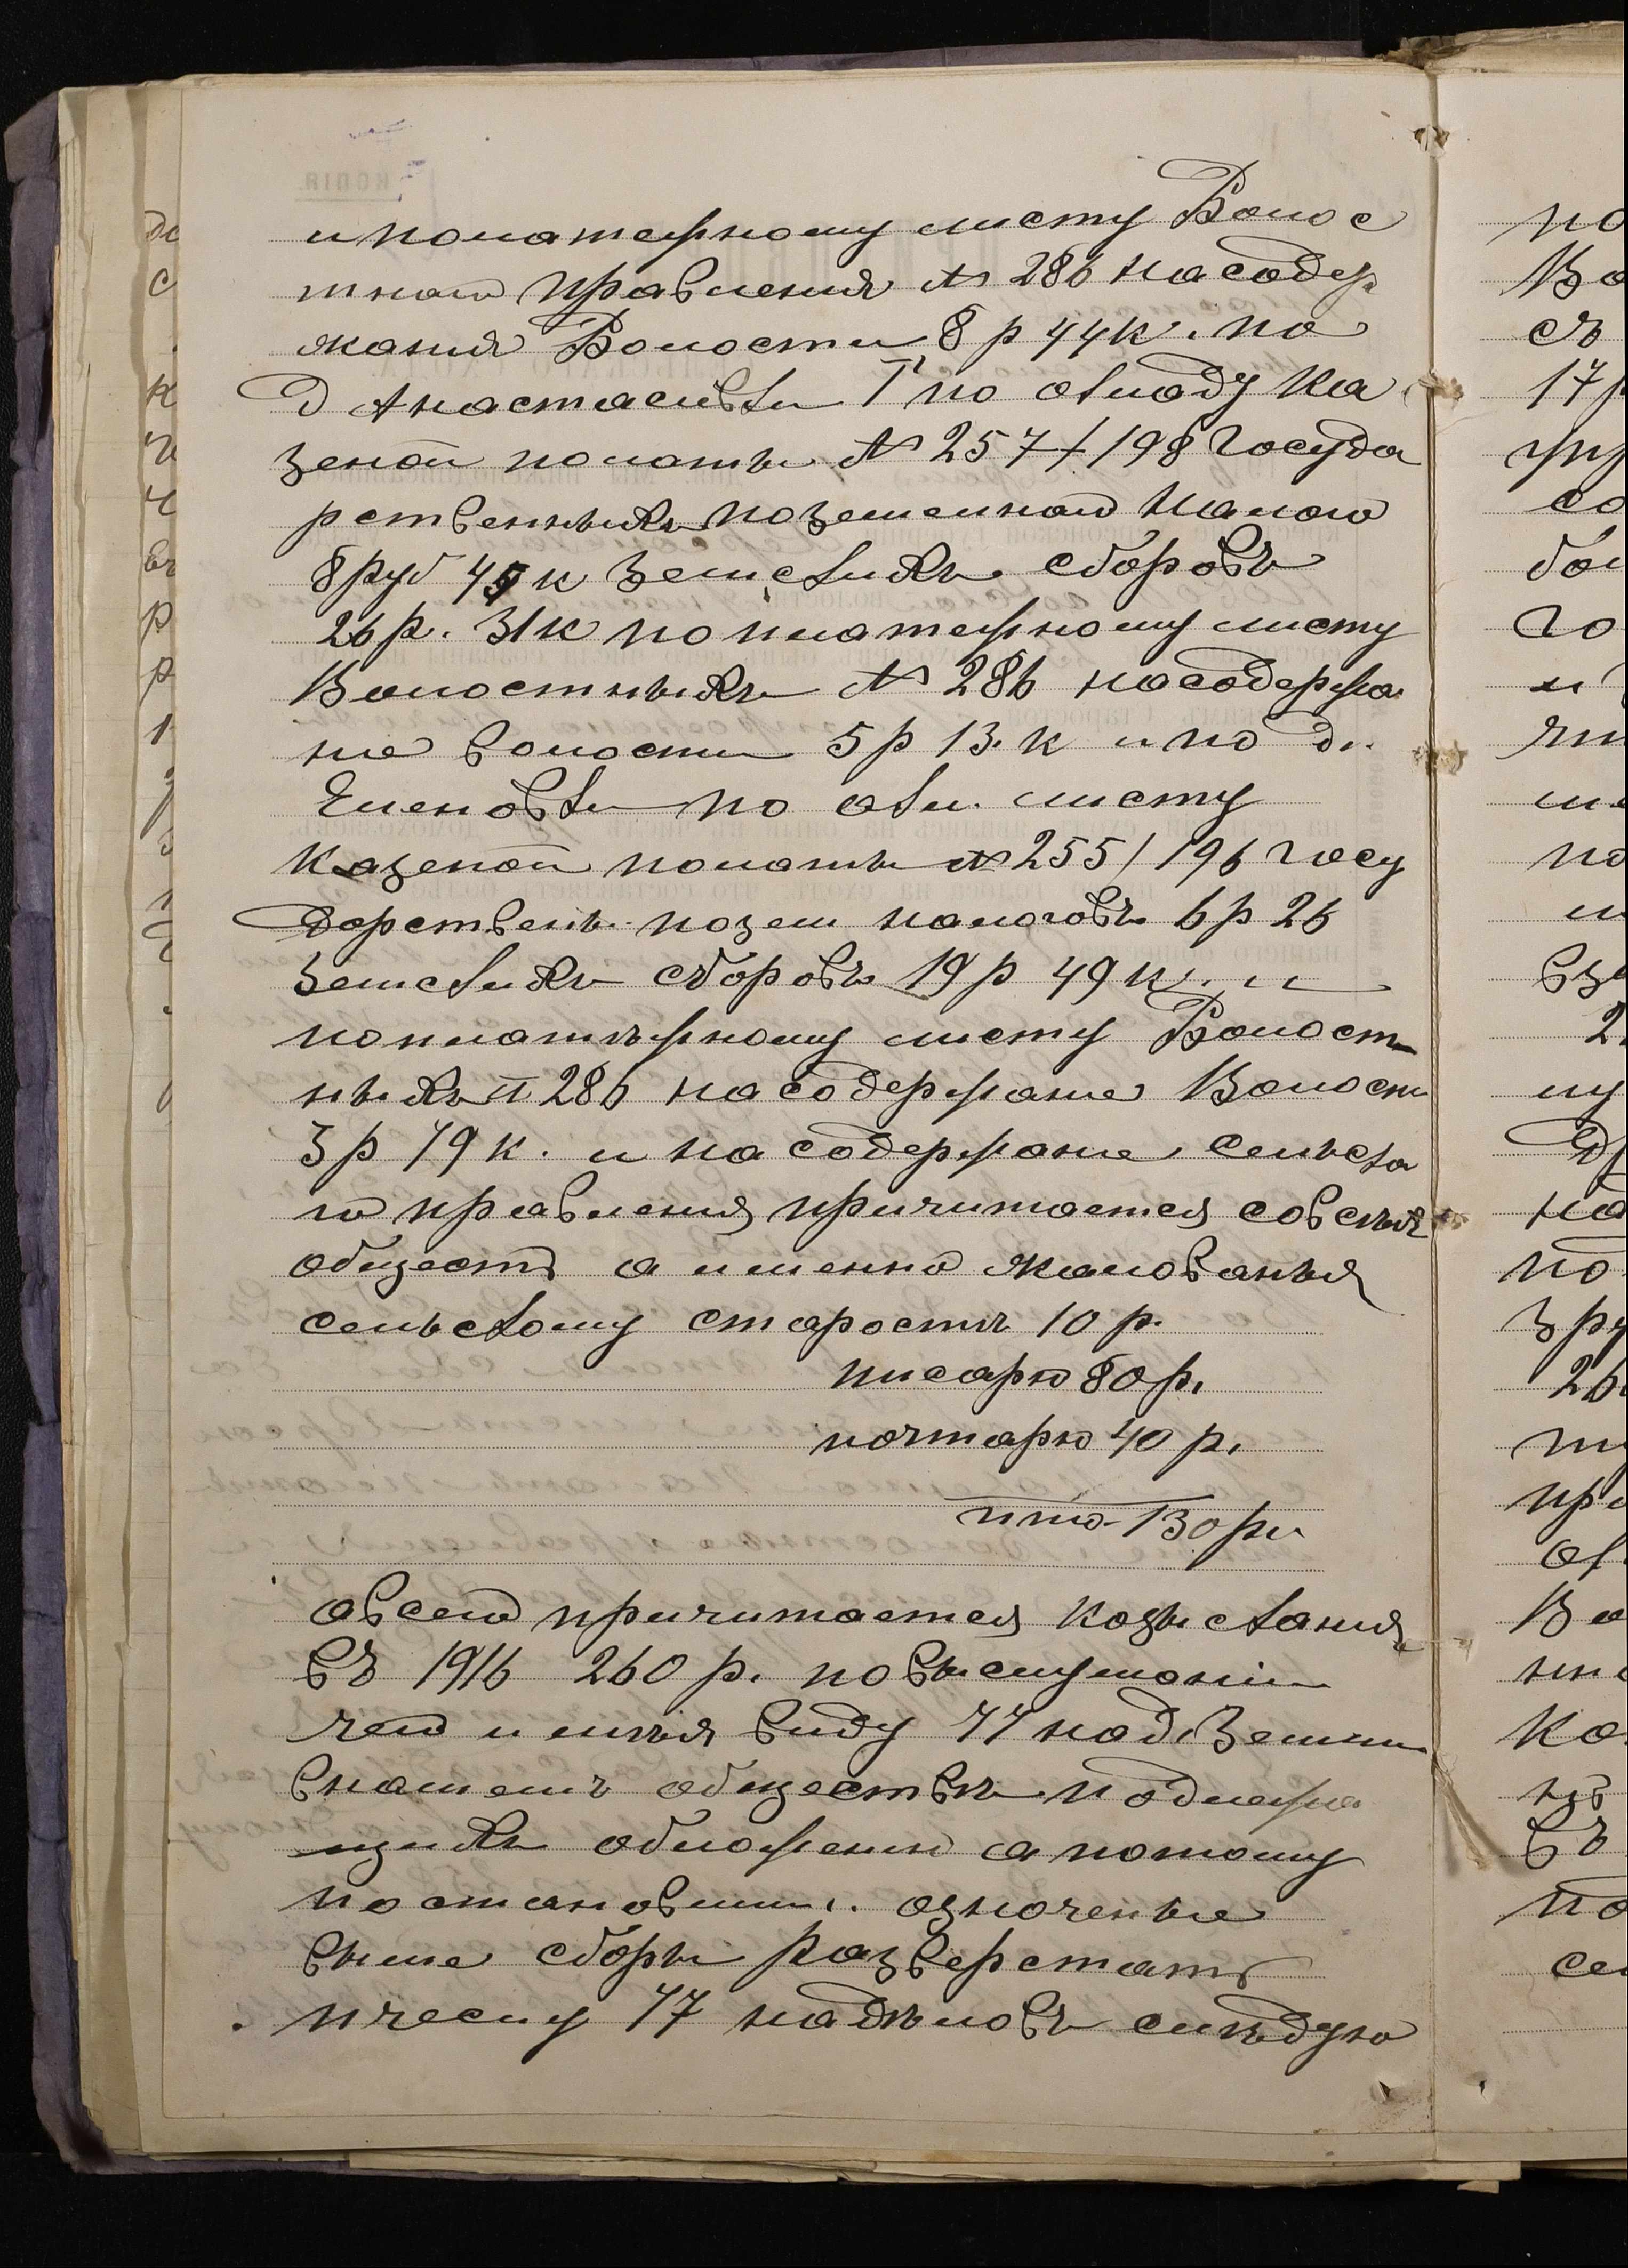 и по платежному листу Волос
тного правления № 286 на содер
жания Волости 8 р 44 к. по
д Анастасивки I по окладу Ка
зеной полаты № 257/198 Госуда
рственныхъ поземелного налого
8 руб 45 к Земскихъ сборовъ
26 р. 31 к по платежному листу
Волостныхъ № 286 на содержа
ние волости 5 р 13. к и по д.
Еленовки по окл. листу
Казеной полаты № 255/196 госу
дарствень. позем налоговъ 6 р 26
Земскихъ сборовъ 19 р 49 к. и
по платежному листу Волост
ныхъ 286 на содержание Волости
3 р 79 к. и на содержание сельска
го правления причитается со всехъ
обществ а именно жалования
сельскому старостѣ 10 р.
писарю 80 р.
почтарю 40 р.
итго 130 р.
а всего причитается ко взысканию
въ 1916 260 р. по выслушании
чего и имѣя виду 77 над. Земли
в нашемъ обществѣ подлежа
щихъ обложению а потому
постановили. означеные
выше сборы разверстать
и числу 77 надѣловъ слѣдую